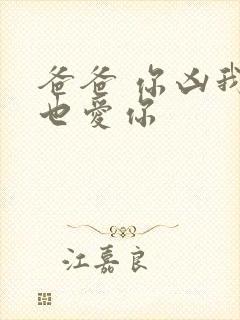 爸爸 你凶我
也愛你
江嘉良